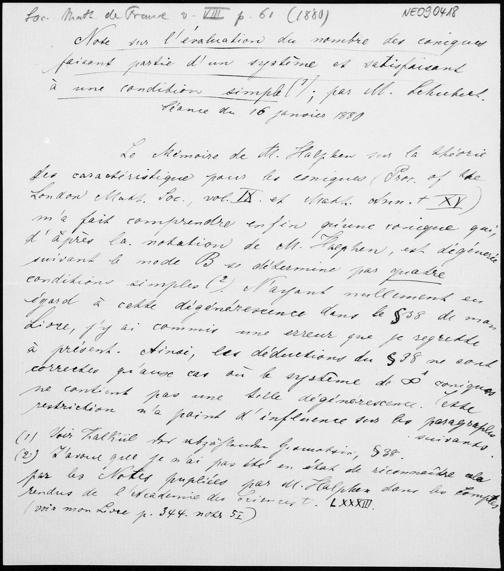 Soc. Math de France v. VIII p. 61 (1880)
NE090418
Note sur l'évaluation du nombre des coniques
faisant partie d'un système et satisfaisant
à une condition simple (1); par M. Schubert.
Séance du 16 janvier 1880
Le Mémoire de M. Halphen sur la théorie
des caractéristique pour les coniques (Proc. of the
London Math. Soc., vol. IX. et Math. Ann. t XV)
m'a fait comprendre enfin qu'une conique qui,
d'après la notation de M. Halphen, est dégénerée
suivant le mode B se détermine par quatre
conditions simples (2) N'ayant nullement eu
égard à cette dégénérescence dans le § 38 de mon
Livre, j'y ai commis une erreur que je regrette
à présent. Ainsi, les déductions du § 38 ne sont
correctes qu'aux cas où le système de ∞¹ coniques
ne contient pas une telle dégénerescence. Cette
restriction n'a point d'influence sur les paragraphes
suivants.
(1) Voir Kalkül der abzählenden Geometrie, § 38.
(2) J'avoue que je n'ai pas été en état de riconnaître cela
par les Notes publiées par M. Halphen dans les Comptes
rendus de l'Academie des Sciences t. LXXXIII.
(voir mon Livre p. 344. note 51)